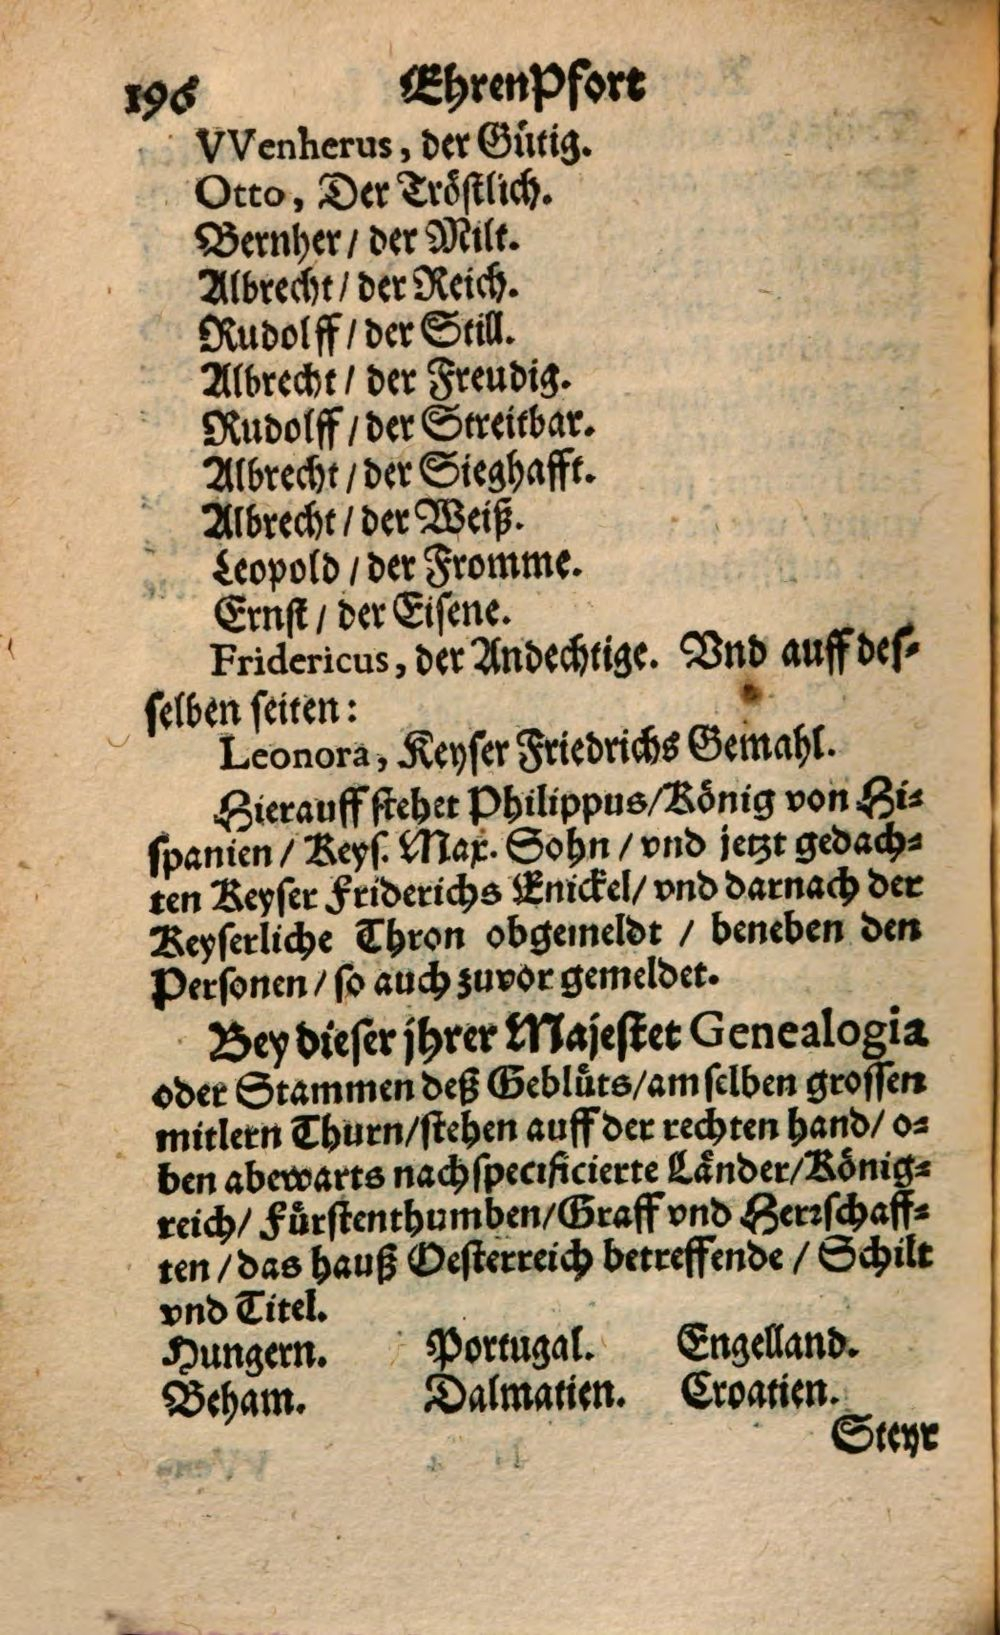 196 EhrenPfort
VVenherus, der Gütig.
Otto, Der Tröstlich.
Bernher / der Milt.
Albrecht / der Reich.
Rudolff / der Still.
Albrecht / der Freudig.
Rudolff / der Streitbar.
Albrecht / der Sieghafft.
Albrecht / der Weiß.
Leopold / der Fromme.
Ernst / der Eisene.
Fridericus, der Andechtige. Vnd auff des-
selben seiten:
Leonora, Keyser Friedrichs Gemahl.
Hierauff stehet Philippus / König von Hi-
spanien / Keys. Max. Sohn / vnd jetzt gedach-
ten Keyser Friderichs Enickel / vnd darnach der
Keyserliche Thron obgemeldt / beneben den
Personen / so auch zuvor gemeldet.
Bey dieser jhrer Majestet Genealogia
oder Stammen deß Geblüts / am selben grossen
mitlern Thurn / stehen auff der rechten hand / o-
ben abewarts nachspecificierte Länder / König-
reich / Fürstenthumben / Graff vnd Herrschaff-
ten / das hauß Oesterreich betreffende / Schilt
vnd Titel.
Hungern. Portugal. Engelland.
Beham. Dalmatien. Croatien.
Steyr